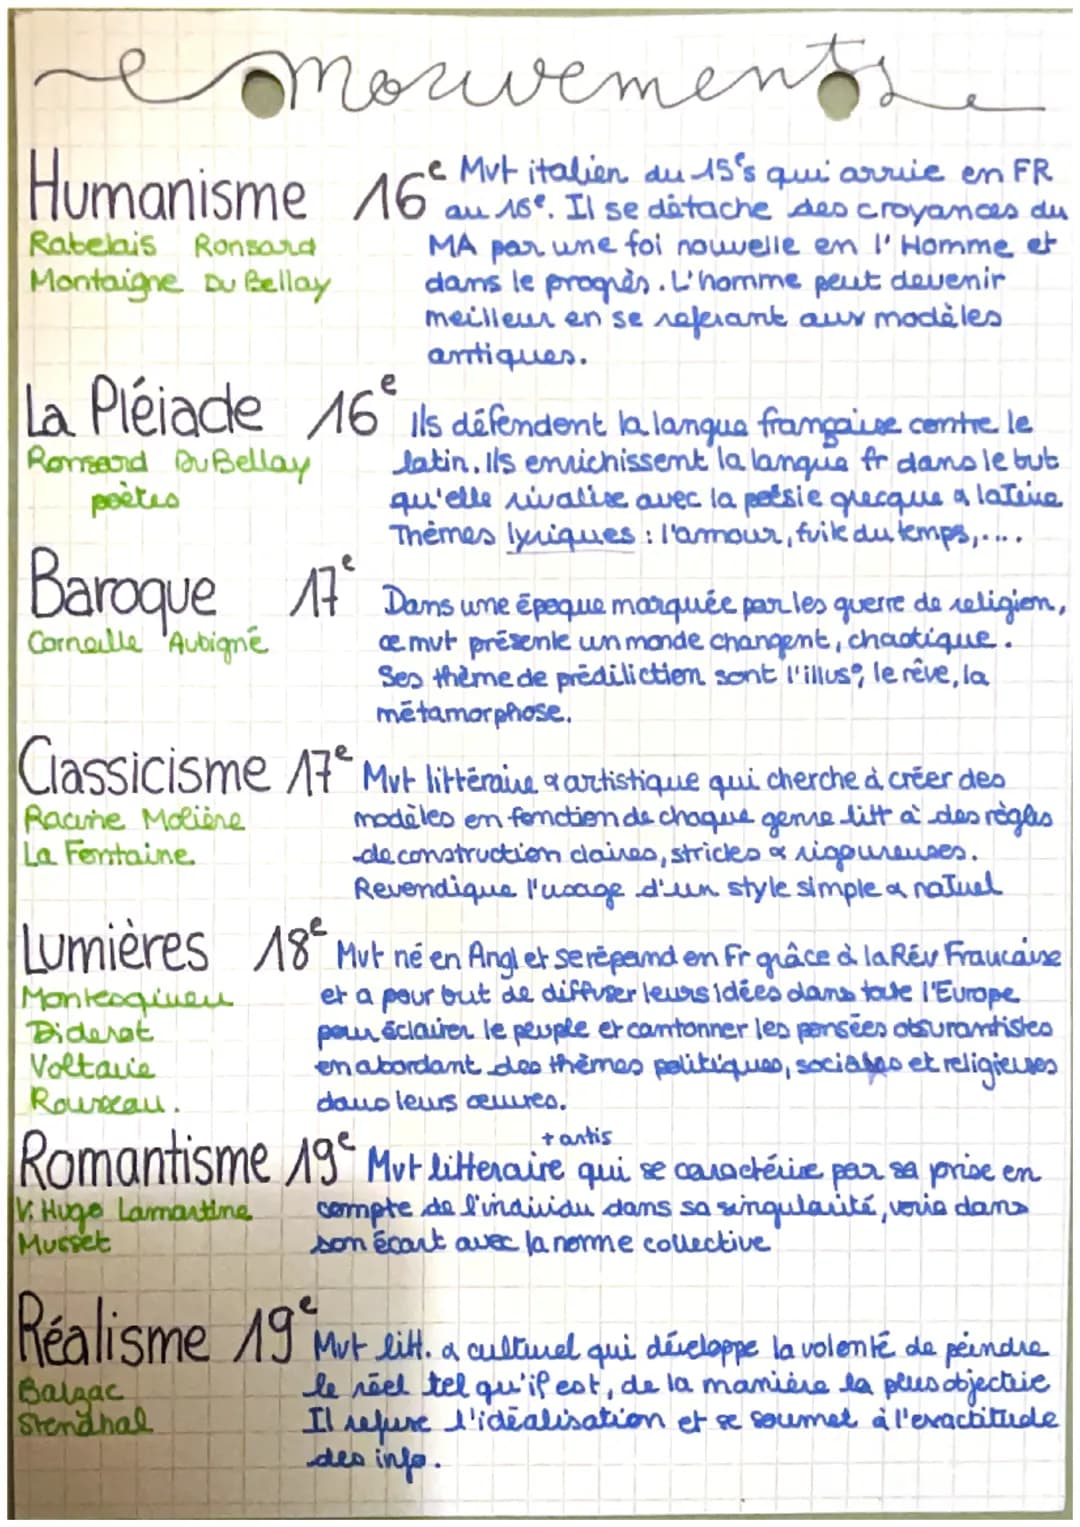 Mouvements
Humanisme 16e Mvt italien du 15e s qui arrive en FR
au 16e. Il se détache des croyances du
Rabelais Ronsard MA par une foi nouvelle en l'Homme et
Montaigne Du Bellay dans le progrès. L'homme peut devenir
meilleur en se referant aux modèles
antiques.
La Pléiade 16e Ils défendent la langue française contre le
Ronsard Du Bellay latin. Ils enrichissent la langue fr dans le but
poètes qu'elle rivalise avec la poésie grecque & latine
Thèmes lyriques : l'amour, fuite du temps,....
Baroque 17e Dans une époque marquée par les guerre de religion,
Corneille Aubigné ce mvt présente un monde changent, chaotique.
Ses thème de prédiliction sont l'illus°, le rêve, la
métamorphose.
Classicisme 17e Mvt littéraire & artistique qui cherche à créer des
Racine Molière modèles en fonction de chaque genre litt à des règles
La Fontaine de construction claires, strictes & rigoureuses.
Revendique l'usage d'un style simple & natuel
Lumières 18e Mvt né en Angl et se répand en Fr grâce à la Rév Francaise
Montesquieu et a pour but de diffuser leurs idées dans toute l'Europe
Diderot pour éclairer le peuple et cantonner les pensées obsurantistes
Voltaire en abordant des thèmes politiques, sociales et religieuses
Rousseau. dans leurs œuvres.
+ artis
Romantisme 19e Mvt litteraire qui se caractérise par sa prise en
V. Hugo Lamartine compte de l'individu dans sa singularité, voire dans
Musset son écart avec la norme collective
Réalisme 19e Mvt litt. & culturel qui développe la volonté de peindre
Balzac le réel tel qu'il est, de la manière la plus objective
Stendhal Il refuse l'idéalisation et se soumet à l'exactitude
des info.